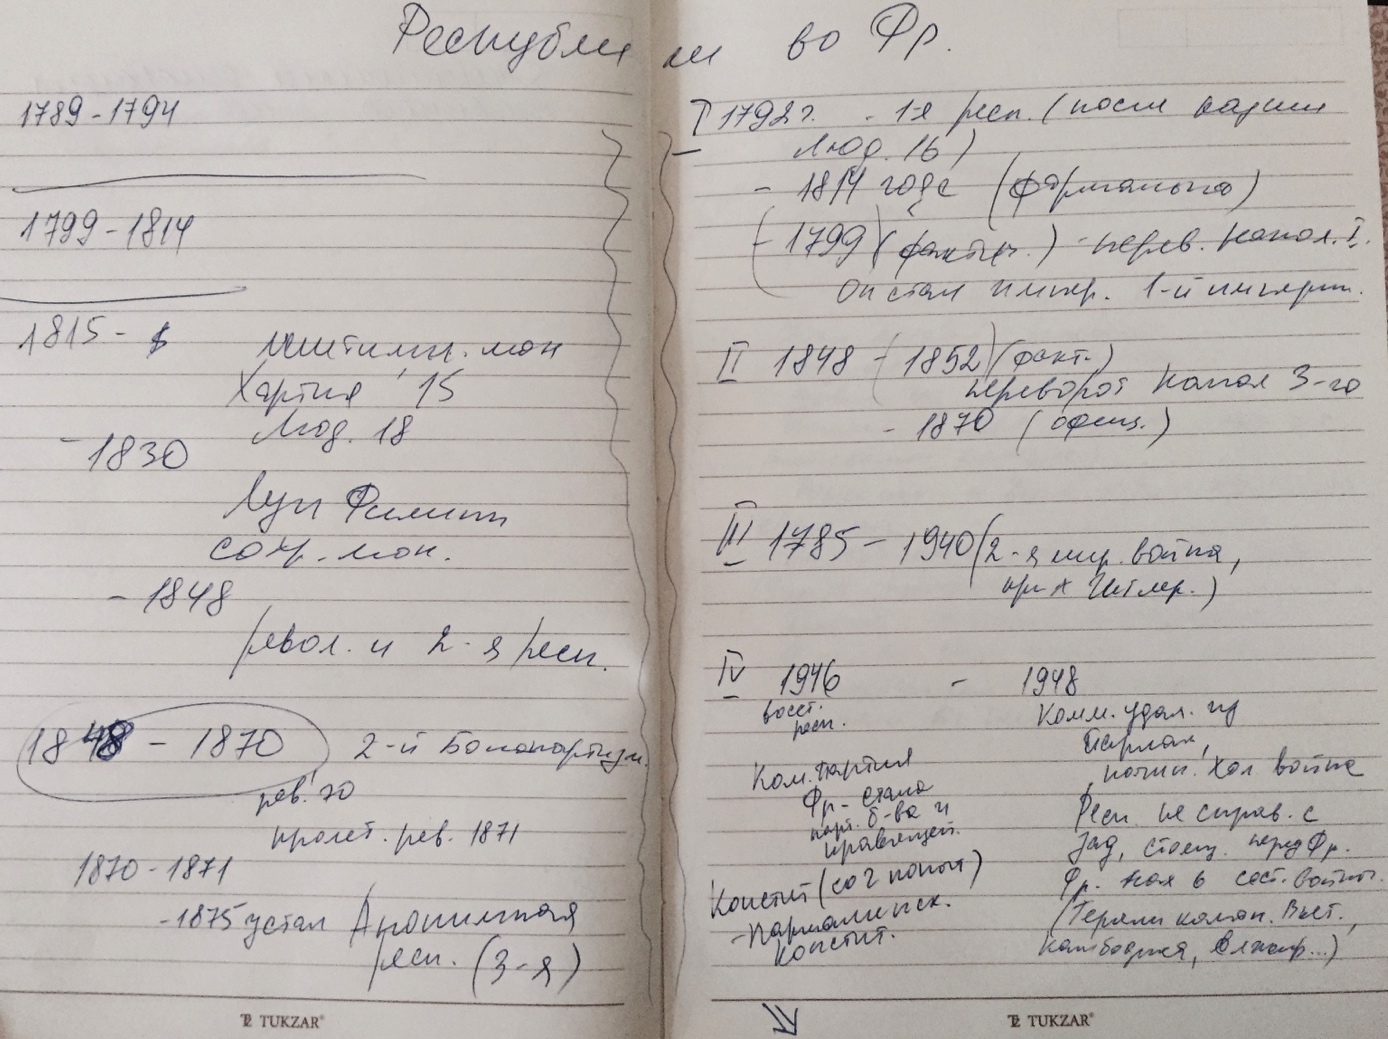 Республики во Фр.
1789-1794
1799-1814
1815-
легитимн. мон
Хартия '15
Люд. 18
- 1830
Луи Филипп
сохр. мон.
- 1848
револ. и 2-я респ.
1848 - 1870 2-й Бонапартизм.
рев. 70
пролет. рев. 1871
1870-1871
-1875 устан Анонимная
респ. (3-я)
TUKZAR
I 1792г. - 1-я респ. (после казни
Люд. 16)
- 1814 года (формально)
- 1799 (фактич.) - перев. Напол. I.
Он стал импер. 1-й импери.
II 1848 - (1852) (факт.)
переворот Напол 3-го
- 1870 (офиц.)
III 1785 - 1940 (2-я мир. война,
Гитлер.)
IV 1946 - 1948
восст.
респ.
Ком. партия
Фр. - стала
парт. б-ва и
правящей.
Констит (со 2 попыт)
- Парламинск.
констит.
Комм. удал. из
Парлам,
, начин. Хол война
Респ. не справ. с
Зад, стоящ. перед Фр.
Фр. нах в сост. войны.
(Теряли колон. Вьет.,
Камбоджа, Алжир...)
TUKZAR